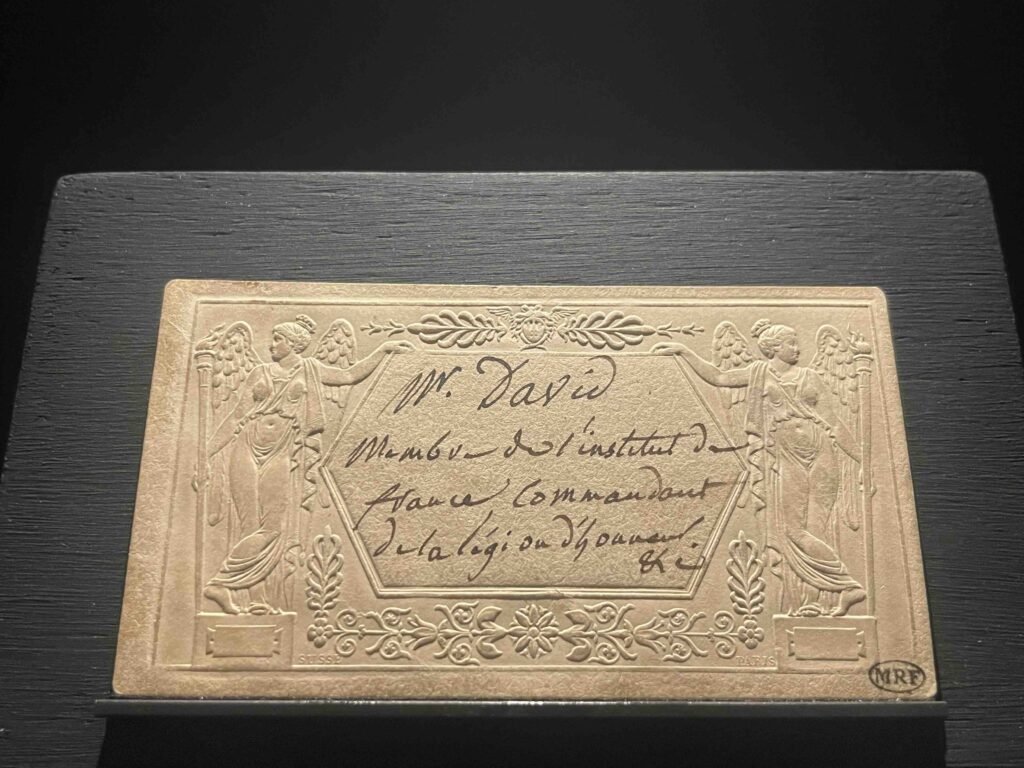 Mr. David
Membre de l'institut de
france Commandant
de la légion d'honneur.
&c
SUSSE PARIS
MRF